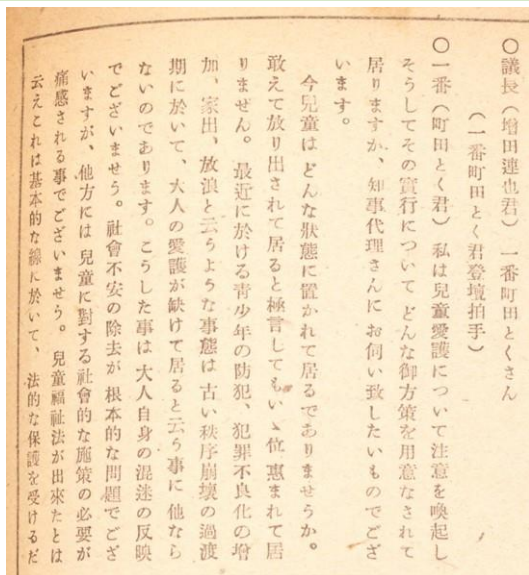 〇議長（増田連也君）　一番町田とくさん
（一番町田とく君登壇拍手）
〇一番（町田とく君）　私は兒童愛護について注意を喚起し
そうしてその實行についてどんな御方策を用意なされて
居りますか、知事代理さんにお伺い致したいものでござ
います。
今兒童はどんな狀態に置かれて居るでありませうか。
敢えて放り出されて居ると極言してもいゝ位惠まれて居
りません。最近に於ける青少年の防犯、犯罪不良化の增
加、家出、放浪と云うような事態は古い秩序崩壞の過渡
期に於いて、大人の愛護が缺けて居ると云う事に他なら
ないのであります。こうした事は大人自身の混迷の反映
でございませう。社會不安の除去が根本的な問題でござ
いますが、他方には兒童に對する社會的な施策の必要が
痛感される事でございませう。兒童福祉法が出來たとは
云えこれは基本的な線に於いて、法的な保護を受けるだ